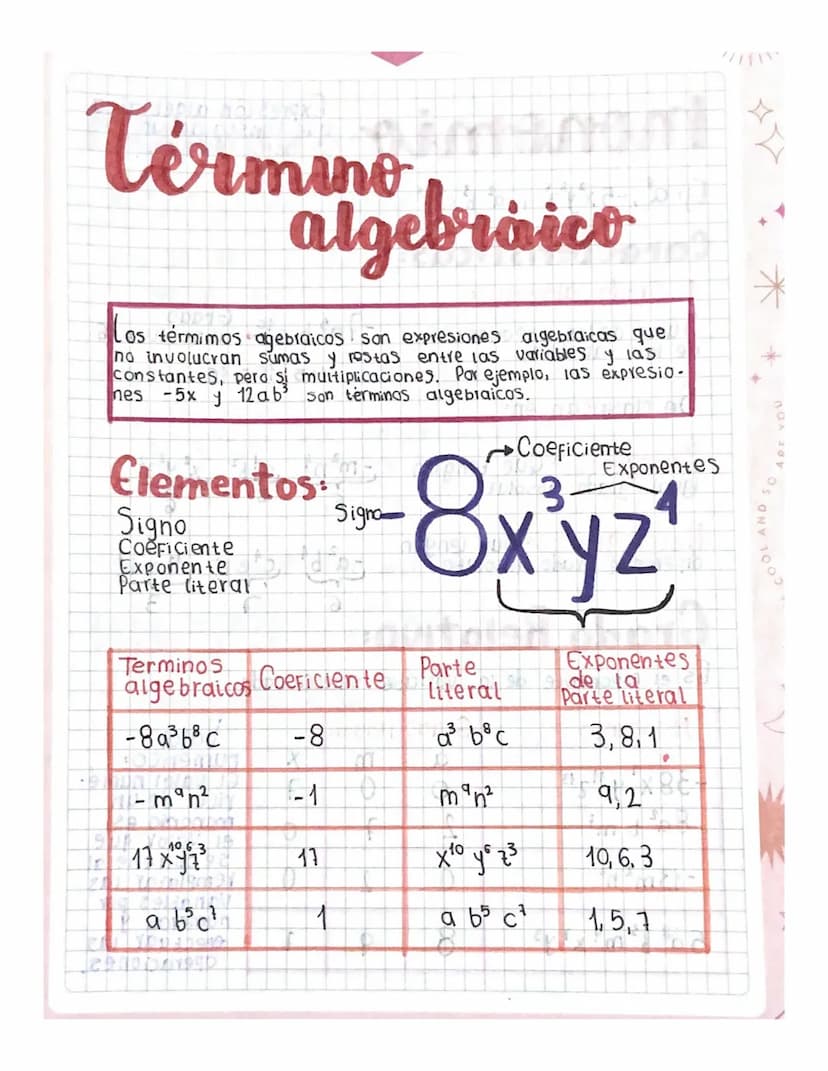 Término
algebráico
Los térmimos agebraicos son expresiones algebraicas que
no involucran sumas y restas entre las variables y las
constantes, pero si multiplicaciones. Por ejemplo, las expresio-
nes -5x y 12ab³ son términos algebraicos.
Elementos:
Signo
Coeficiente
Exponente
Parte literal
Coeficiente
Exponentes
Signo
8x³yz⁴
Terminos algebraicos Coeficiente Parte literal Exponentes de la Parte literal
-8a³b⁸c -8 a³ b⁸c 3, 8, 1
- m⁹n² -1 m⁹n² 9, 2
17 x¹⁰y⁶z³ 17 x¹⁰ y⁶ z³ 10, 6, 3
a b⁵c⁷ 1 a b⁵ c⁷ 1, 5, 7
COOL AND SO ARE YOU